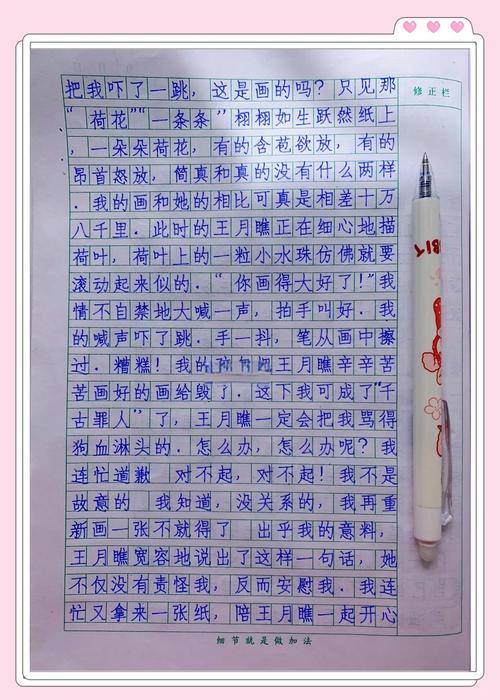 把我吓了一跳，这是画的吗？只见那
“荷花”“一条条”栩栩如生跃然纸上
，一朵朵荷花，有的含苞欲放，有的
昂首怒放，简真和真的没有什么两样
．我的画和她的相比可真是相差十万
八千里．此时的王月瞧正在细心地描
荷叶，荷叶上的一粒小水珠仿佛就要
滚动起来似的．“你画得大好了！”我
情不自禁地大喊一声，拍手叫好．我
的喊声吓了跳．手一抖，笔从画中擦
过．糟糕！我的 王月瞧辛辛苦
苦画好的画给毁了．这下我可成了“千
古罪人”了，王月瞧一定会把我骂得
狗血淋头的．怎么办，怎么办呢？我
连忙道歉 对不起，对不起！我不是
故意的 我知道，没关系的，我再重
新画一张不就得了 出乎我的意料，
王月瞧宽容地说出了这样一句话，她
不仅没有责怪我，反而安慰我．我连
忙又拿来一张纸，陪王月瞧一起开心
修正栏
细节就是做加法